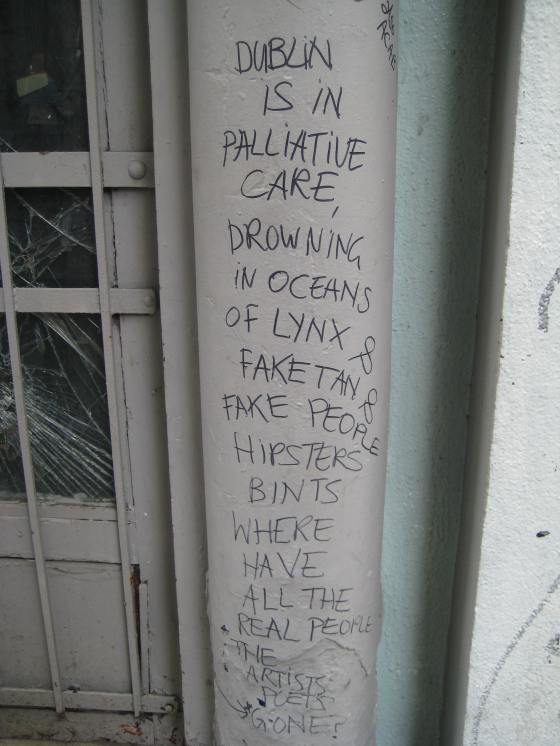 DUBLIN
IS IN
PALLIATIVE
CARE,
DROWNING
IN OCEANS
OF LYNX &
FAKE TAN &
FAKE PEOPLE
HIPSTERS
BINTS
WHERE
HAVE
ALL THE
REAL PEOPLE
THE
ARTISTS
POETS
GONE?
ACAB